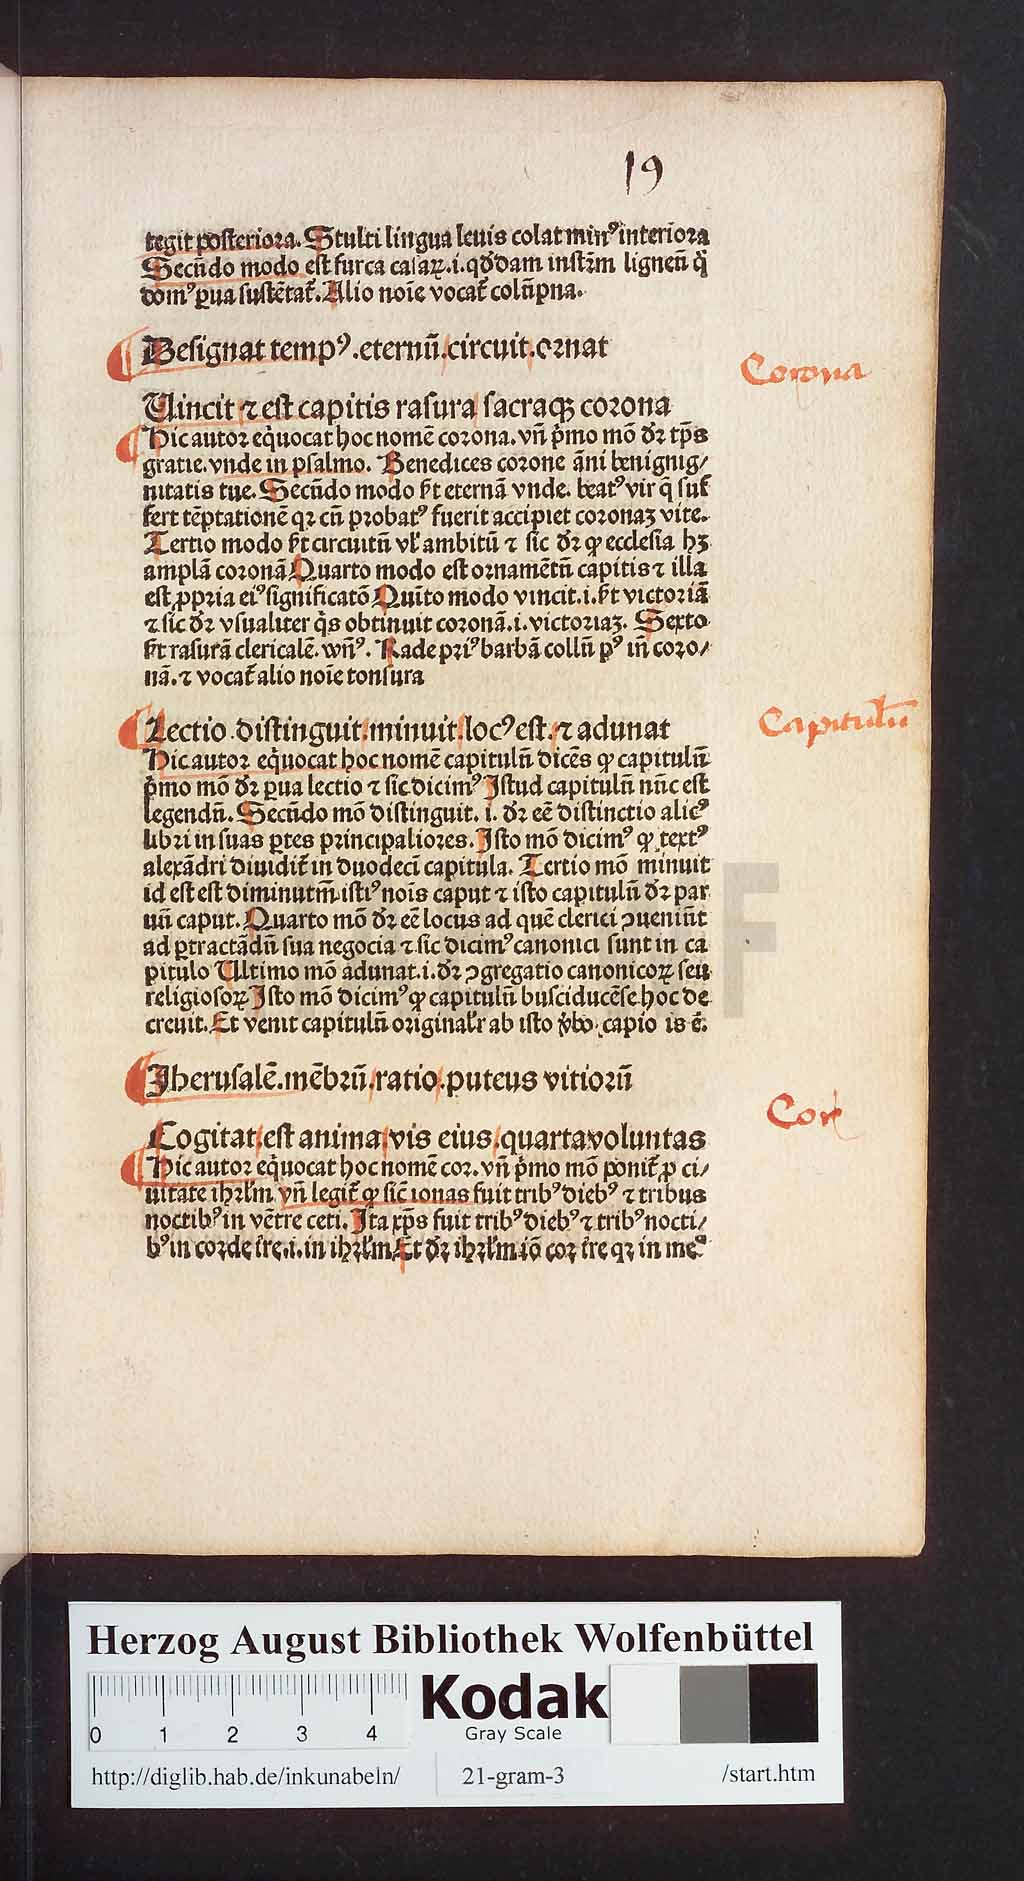 19
tegit posteriora. Stulti lingua leuis colat minꝰ interiora
Secūdo modo est furca casaꝝ .i. qḋdam instr̄m ligneū q̄
domꝰ ꝑua sustētat̄. Alio noīe vocat̄ colūpna.
Designat tempꝰ .eternū. circuit. ornat
Corona
Uincit ⁊ est capitis rasura sacraqꝫ corona
Hic autor eq̇uocat hoc nomē corona. vñ p̄mo mō dr̄ tp̄s
gratie. vnde in psalmo. Benedices corone āni benignig/
nitatis tue. Secūdo modo ſt eternā vnde. beatꝰ vir q̄ suf
fert tēptationē qꝛ cū probatꝰ fuerit accipiet coronaꝫ vite.
Tertio modo ſt circuitū vl̓ ambitū ⁊ sic dr̄ ꝙ ecclesia hꝫ
amplā coronā Quarto modo est ornamētū capitis ⁊ illa
est ꝓpria eiꝰ significatō Quīto modo vincit .i. ſt victoriā
⁊ sic dr̄ vsualiter q̇s obtinuit coronā .i. victoriaꝫ. Sexto
ſt rasurā clericalē. vn̄ꝰ. Rade priꝰ barbā collū pꝰ in̄ coro/
nā. ⁊ vocat̄ alio noīe tonsura
Lectio distinguit minuit locꝰ est. ⁊ adunat
Capitulū
Hic autor eq̇uocat hoc nomē capitulū dicēs ꝙ capitulū
p̄mo mō dr̄ ꝑua lectio ⁊ sic dicimꝰ Istud capitulū nūc est
legendū. Secūdo mō distinguit. i. dr̄ eē distinctio alicꝰ
libri in suas ꝑtes principaliores. Isto mō dicimꝰ ꝙ textꝰ
alexādri diuidit̄ in duodecī capitula. Tertio mō minuit
id est est diminutm̄ istiꝰ nois caput ⁊ isto capitulū dr̄ par
uū caput. Quarto mō dr̄ eē locus ad quē clerici ꝯueniūt
ad ꝑtractādū sua negocia ⁊ sic dicimꝰ canonici sunt in ca
pitulo Ultimo mō adunat .i. dr̄ ꝯgregatio canonicoꝝ seu
religiosoꝝ Isto mō dicimꝰ ꝙ capitulū busciducēse hoc de
creuit. Et venit capitulū originalr̄ ab isto v̄bo capio is ē.
Iherusalē. mēbrū. ratio. puteus vitiorū
Cor
Cogitat. est anima. vis eius. quarta voluntas
Hic autor eq̇uocat hoc nomē cor. vñ p̄mo mō ponit̄ ꝓ ci/
uitate ihrl̄m vñ legit̄ ꝙ sic̄ ionas fuit tribꝰ diebꝰ ⁊ tribus
noctibꝰ in vētre ceti. Ita xp̄s fuit tribꝰ diebꝰ ⁊ tribꝰ nocti/
bꝰ in corde tr̄e .i. in ihrl̄m Et dr̄ ihrl̄m iō cor tr̄e qꝛ in me
Herzog August Bibliothek Wolfenbüttel
0 1 2 3 4
Kodak
Gray Scale
http://diglib.hab.de/inkunabeln/ 21-gram-3 /start.htm